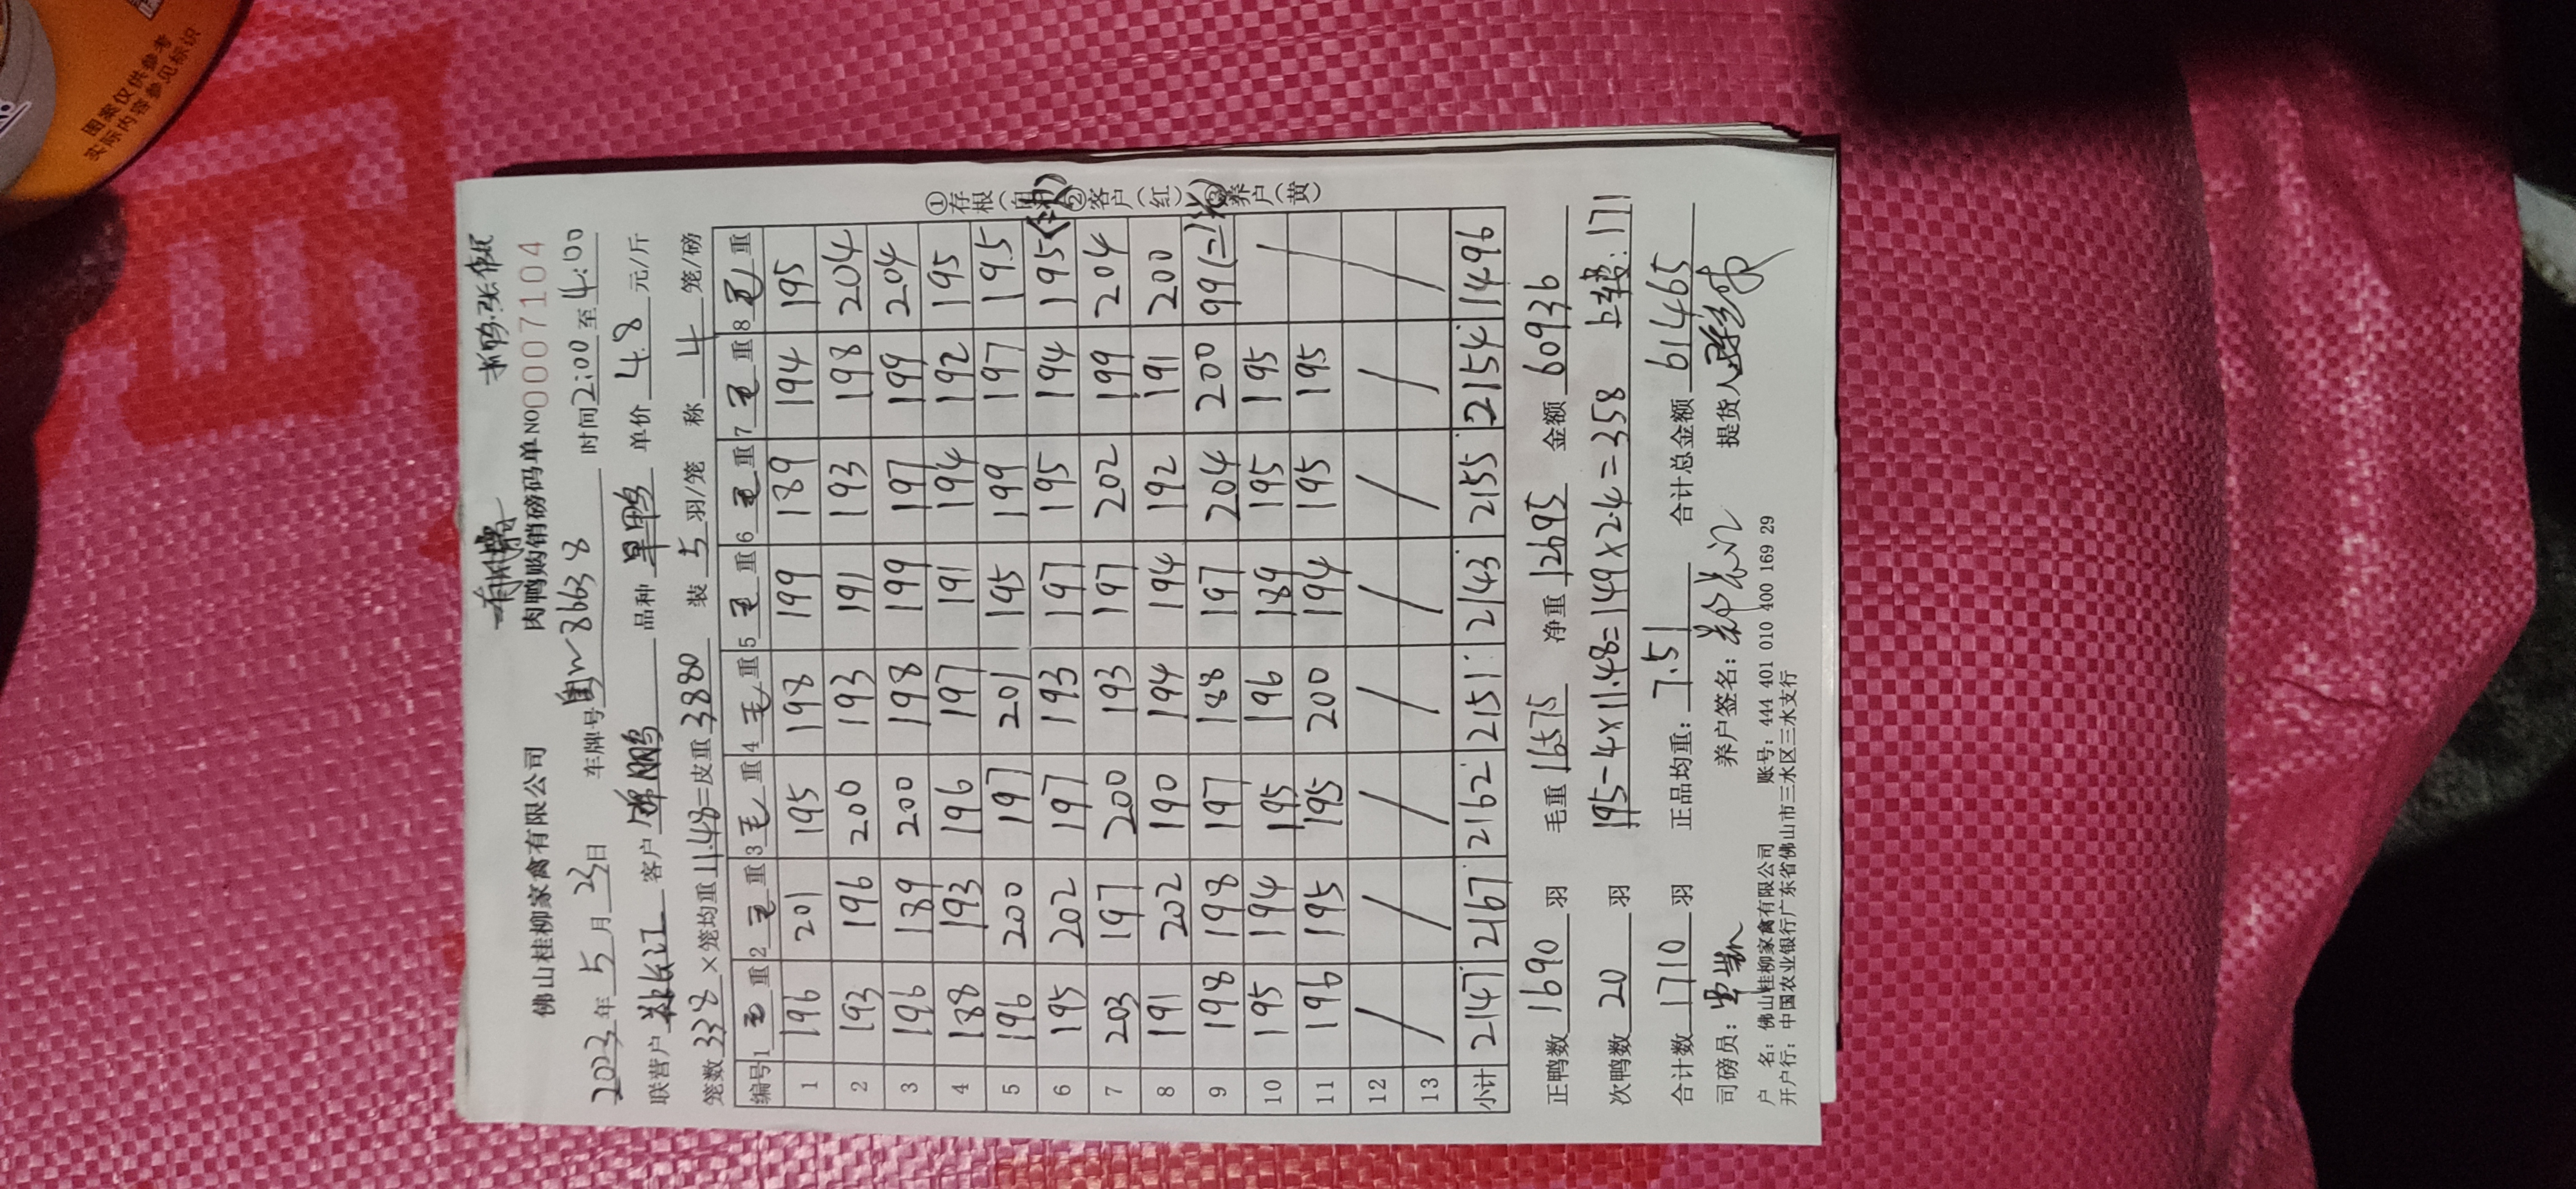 图案仅供参考
实际内容参见标识
抓鸭:张保
佛山桂柳家禽有限公司 肉鸭购销磅码单 NO 0007104
2023年5月23日 车牌号 86638 时间2:00至4:00
联营户 客户 鹏 品种 旱鸭 单价 4.8 元/斤
笼数338×笼均重11.48=皮重3880 装5羽/笼 称4笼/磅
编号 1毛重 2毛重 3毛重 4毛重 5毛重 6毛重 7毛重 8毛重
1 196 201 195 198 199 189 194 195
2 193 196 200 193 191 193 198 204
3 196 189 200 198 199 197 199 204
4 188 193 196 197 191 194 192 195
5 196 200 197 201 195 199 197 195
6 195 202 197 193 197 195 194 195
7 203 197 200 193 197 202 199 204
8 191 202 190 194 194 192 191 200
9 198 198 197 188 197 204 200 99(=
10 195 194 195 196 189 195 195 /
11 196 195 195 200 194 195 195
12 / / / / / / / /
13
小计 2147 2167 2162 2151 2143 2155 2154 1496
①存根(白) ②客户(红) ③养户(黄)
正鸭数 1690 羽 毛重 16575 净重 12695 金额 60936
次鸭数 20 羽 195-4×11.48=149×2.4=358 上车费:171
合计数 1710 羽 正品均重:7.51 合计总金额 61465
司磅员: 养户签名: 提货人
户 名:佛山桂柳家禽有限公司 账号:444 401 010 400 169 29
开户行:中国农业银行广东省佛山市三水区三水支行